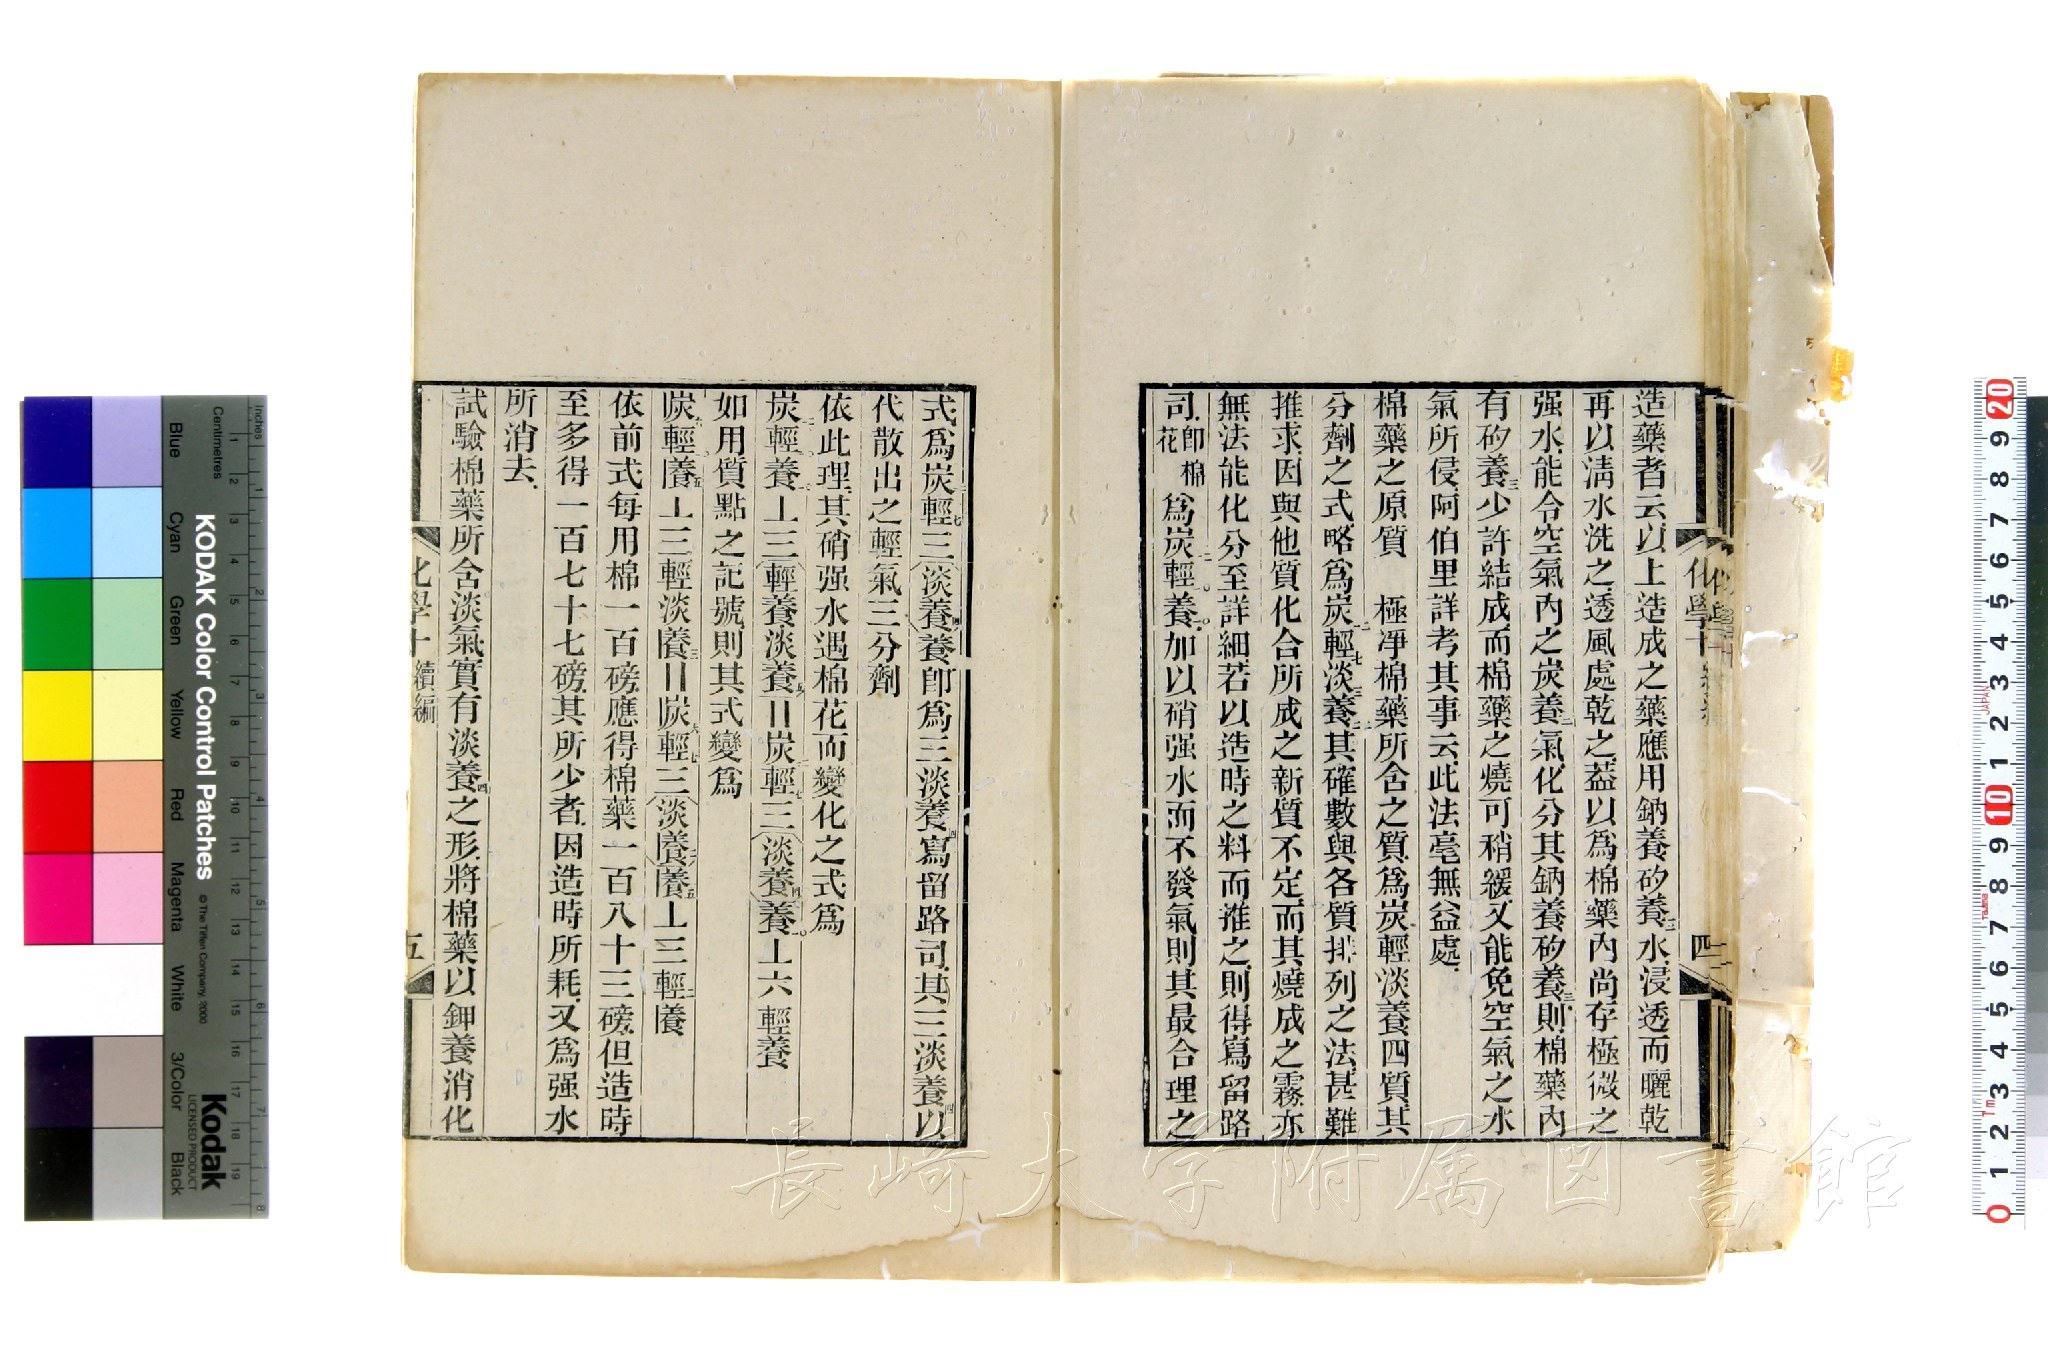 造藥者云以上造成之藥應用鈉養矽養三水浸透而曬乾
再以淸水洗之透風處乾之葢以爲棉藥內尚存極微之
强水能令空氣內之炭養二氣化分其鈉養矽養三則棉藥內
有矽養三少許結成而棉藥之燒可稍緩又能免空氣之水
氣所侵阿伯里詳考其事云此法毫無益處
棉藥之原質　極凈棉藥所含之質爲炭輕淡養四質其
分劑之式略爲炭輕七淡三養其確數與各質排列之法甚難
推求因與他質化合所成之新質不定而其燒成之霧亦
無法能化分至詳細若以造時之料而推之則得寫留路
司卽棉花爲炭輕養加以硝强水而不發氣則其最合理之
化學十
四
式爲炭輕七三(淡養四養卽爲三淡養四寫留路司其三淡養四以
代散出之輕氣三分劑
依此理其硝强水遇棉花而變化之式爲
炭輕養⊥三(輕養淡養五〢炭輕七三(淡養四)養⊥六輕養
如用質點之記號則其式變爲
炭六輕養五⊥三輕淡養三〢炭六輕七三(淡養二)養五⊥三輕二養
依前式每用棉一百磅應得棉藥一百八十三磅但造時
至多得一百七十七磅其所少者因造時所耗又爲强水
所消去
試驗棉藥所含淡氣實有淡養四之形將棉藥以鉀養消化
化學十 續編
五
長崎大学附属図書館
KODAK Color Control Patches
© The Tiffen Company, 2000
Kodak
LICENSED PRODUCT
Inches
Centimetres
Blue Cyan Green Yellow Red Magenta White 3/Color Black